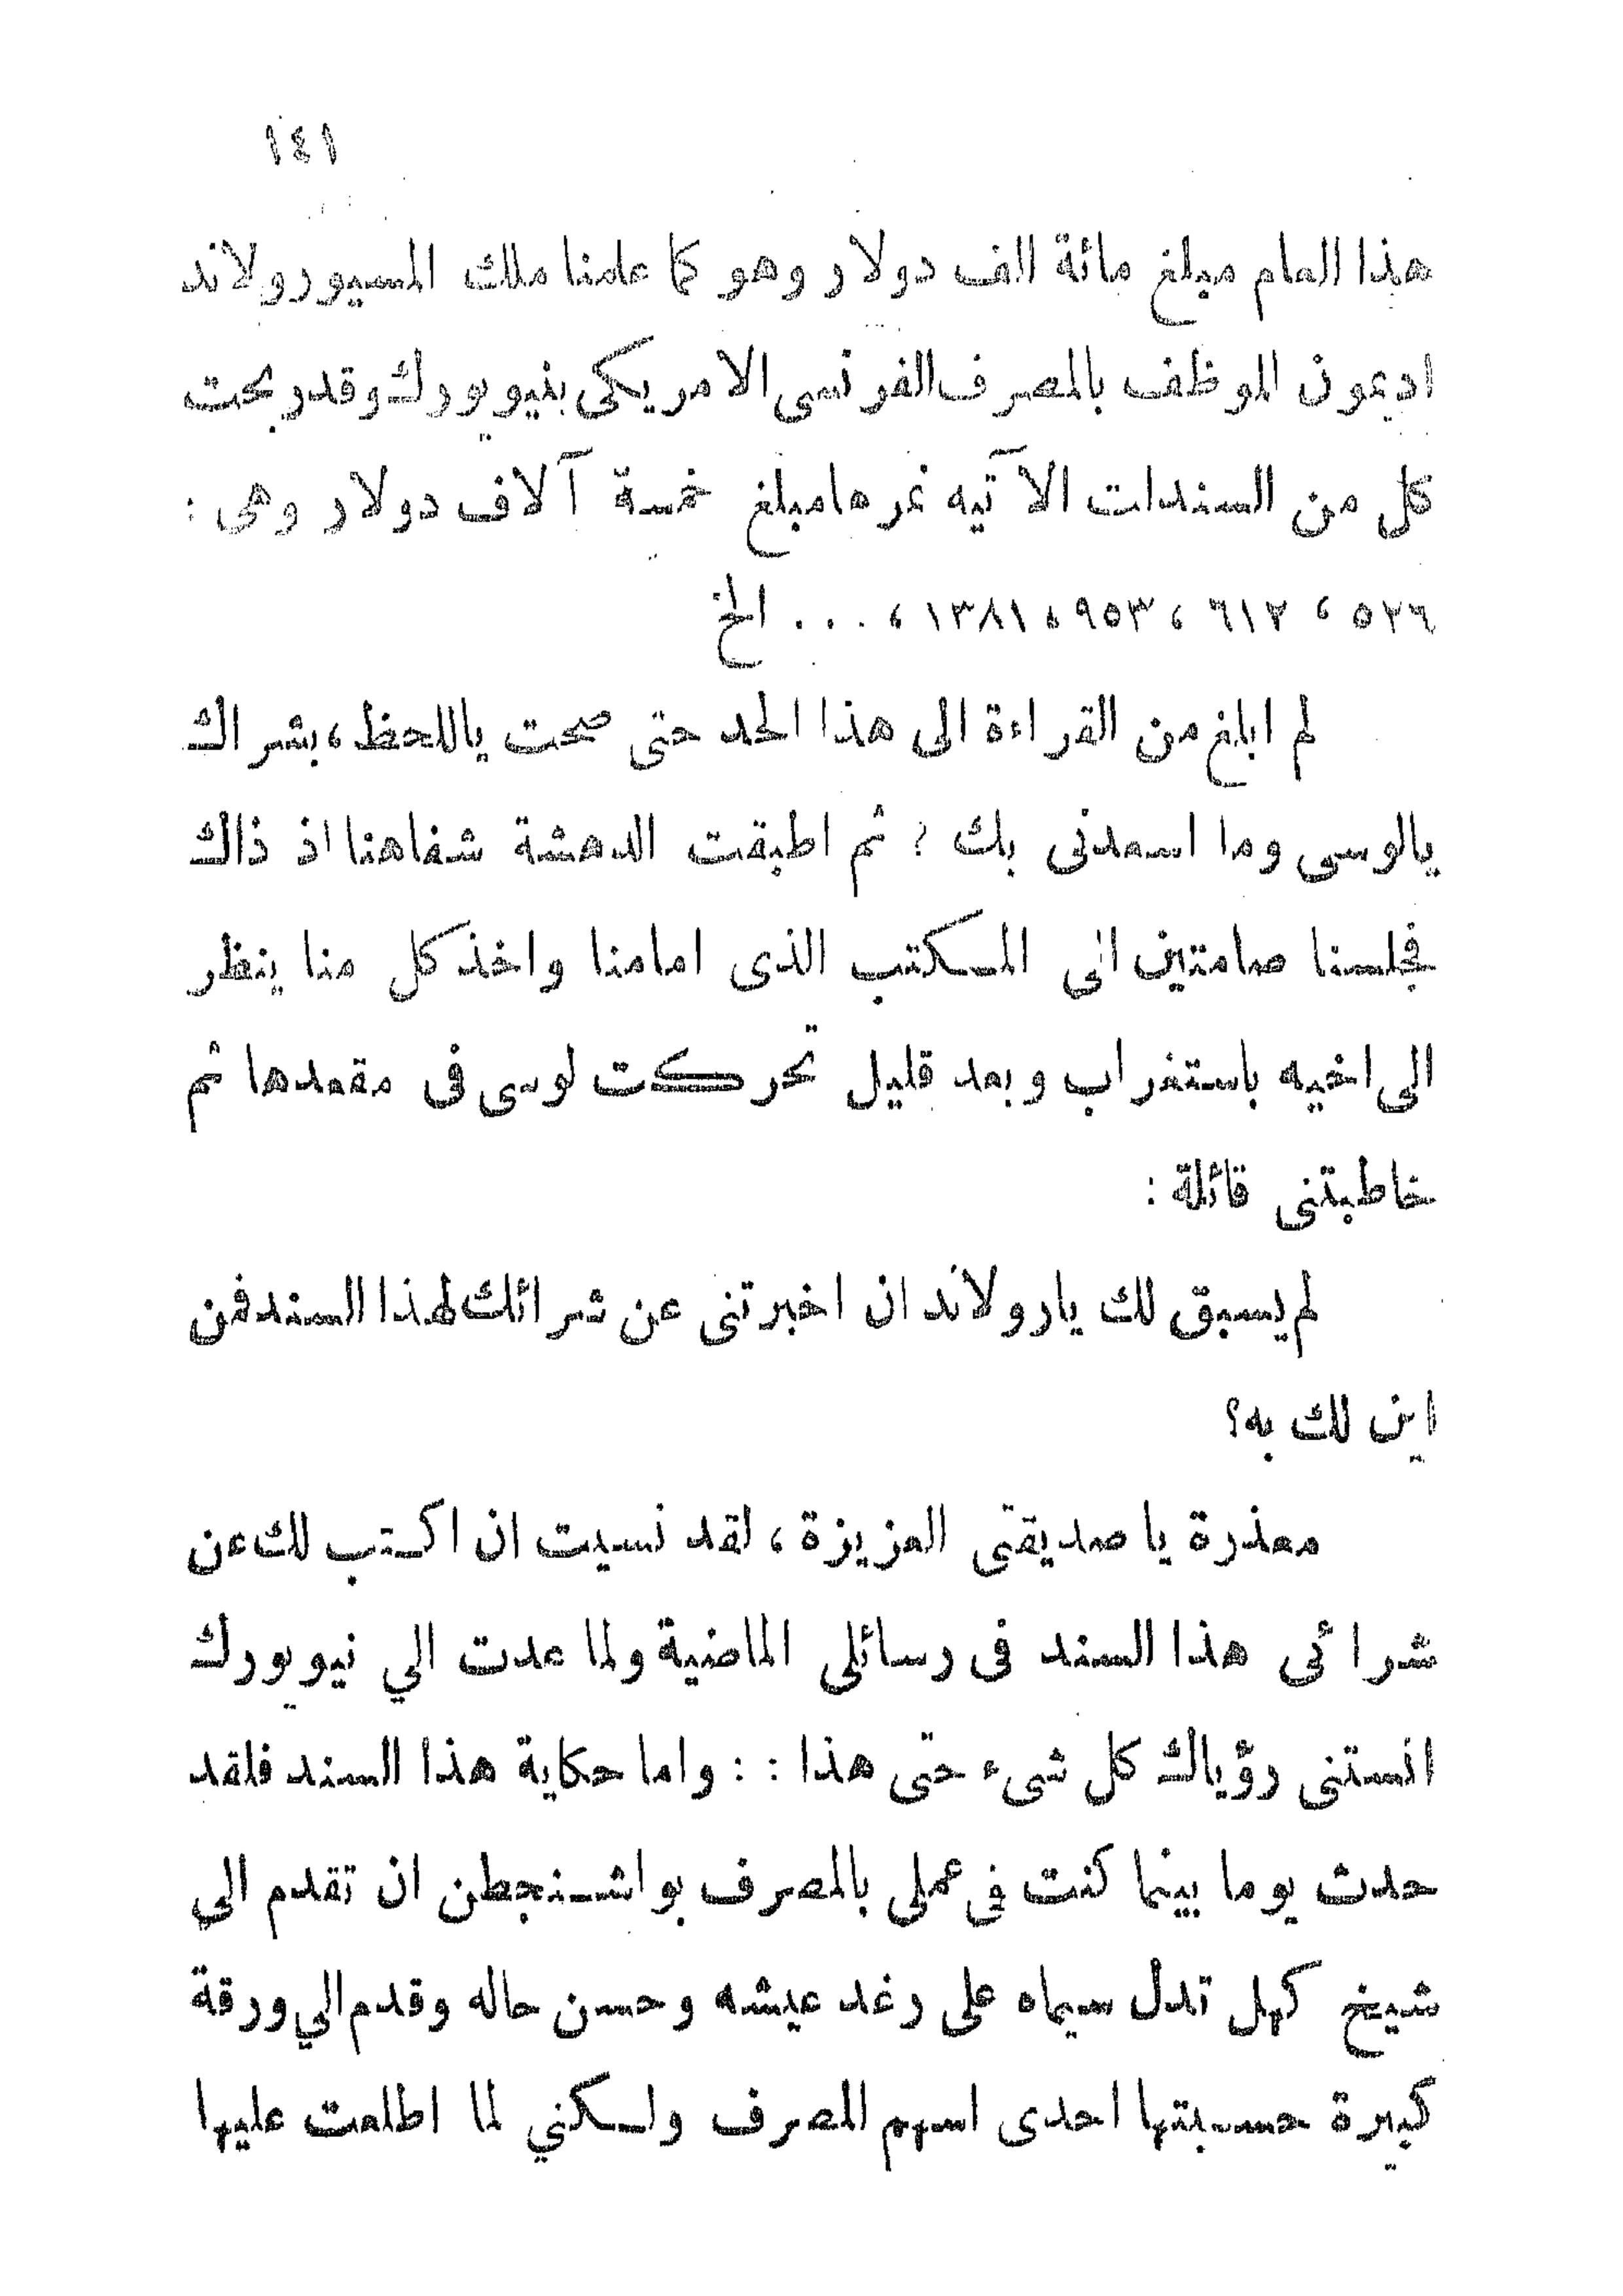 ١٤١
هذا العام مبلغ مائة الف دولار وهو كما علمنا ملك المسيو رولاند
اديمون الموظف بالمصرف الفرنسى الامريكى بنيويورك وقد ربحت
كل من السندات الآتيه نمرها مبلغ خمسة آلاف دولار وهى :
٥٢٦ ، ٦١٢ ، ٩٥٣ ، ١٣٨١ ، . . . الخ
لم ابلغ من القراءة الى هذا الحد حتى صحت ياللحظ ، بشراك
يالوسى وما اسعدنى بك ! ثم اطبقت الدهشة شفاهنا اذ ذاك
فجلسنا صامتين الى المكتب الذى امامنا واخذ كل منا ينظر
الى اخيه باستغراب وبعد قليل تحركت لوسى فى مقعدها ثم
خاطبتنى قائلة :
لم يسبق لك يارولاند ان اخبرتنى عن شرائك لهذا السند فمن
اين لك به؟
معذرة يا صديقتى العزيزة ، لقد نسيت ان اكتب لك عن
شرائى هذا السند فى رسائلى الماضية ولما عدت الي نيويورك
انستنى رؤياك كل شىء حتى هذا : : واما حكاية هذا السند فلقد
حدث يوما بينما كنت في عملي بالمصرف بواشنجطن ان تقدم الي
شيخ كهل تدل سيماه على رغد عيشه وحسن حاله وقدم الي ورقة
كبيرة حسبتها احدى اسهم المصرف ولكني لما اطلعت عليها